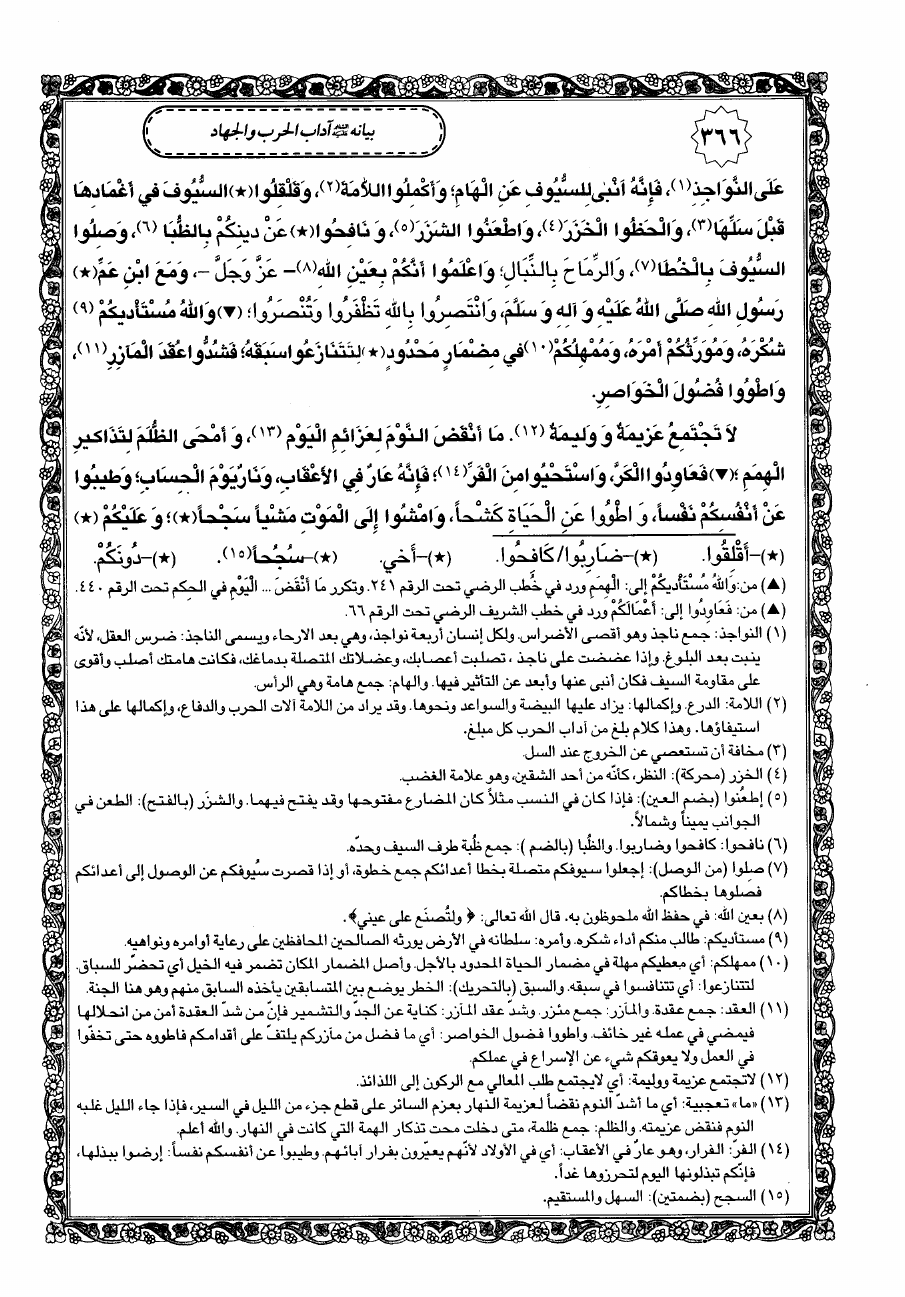 ٣٦٦
بيانه آداب الحرب والجهاد
عَلَى النَّوَاجِذِ (١)، فَإِنَّهُ أَنْبىٰ لِلسُّيُوفِ عَنِ الْهَامِ؛ وَأَكْمِلُوا اللاَّمَةَ (٢)، وَقَلْقِلُوا (★) السُّيُوفَ في أَغْمَادِهَا
قَبْلَ سَلِّهَا (٣)، وَالْحَظُوا الْخَزَرَ (٤)، وَاطْعَنُوا الشَزَرَ (٥)، وَ نَافِحُوا (★) عَنْ دينِكُمْ بِالظُّبَا (٦)، وَصِلُوا
السُّيُوفَ بِالْخُطَا (٧)، وَالرِّمَاحَ بِالنِّبَالِ؛ وَاعْلَمُوا أَنَّكُمْ بِعَيْنِ اللهِ (٨) – عَزَّ وَجَلَّ –، وَمَعَ ابْنِ عَمِّ (★)
رَسُولِ اللهِ صَلَّى اللهُ عَلَيْهِ وَ آلِهِ وَ سَلَّمَ، وَانْتَصِرُوا بِاللهِ تَظْفَرُوا وَتُنْصَرُوا؛ (▼) وَاللهُ مُسْتَأْديكُمْ (٩)
شُكْرَهُ، وَمُوَرِّثُكُمْ أَمْرَهُ، وَمُمْهِلُكُمْ (١٠) في مِضْمَارٍ مَحْدُودٍ (★) لِتَتَنَازَعُوا سَبَقَهُ؛ فَشُدُّوا عُقَدَ الْمَازِرِ (١١)،
وَاطْوُوا فُضُولَ الْخَوَاصِرِ.
لاَ تَجْتَمِعُ عَزيمَةٌ وَ وَليمَةٌ (١٢). مَا أَنْقَضَ النَّوْمَ لِعَزَائِمِ الْيَوْمِ (١٣)، وَ أَمْحَى الظُّلَمَ لِتَذَاكيرِ
الْهِمَمِ؛ (▼) فَعَاوِدُوا الْكَرَّ، وَاسْتَحْيُوا مِنَ الْفَرِّ (١٤)؛ فَإِنَّهُ عَارٌ فِي الأَعْقَابِ، وَنَارٌ يَوْمَ الْحِسَابِ؛ وَطيبُوا
عَنْ أَنْفُسِكُمْ نَفْساً، وَ اطْوُوا عَنِ الْحَيَاةِ كَشْحاً، وَامْشُوا إِلَى الْمَوْتِ مَشْياً سَجْحاً (★)؛ وَ عَلَيْكُمْ (★)
(★)–أَقْلِقُوا. (★)–ضَارِبُوا/كَافِحُوا. (★)–أَخي. (★)–سُجُحاً (١٥). (★)–دُونَكُمْ.
(▲) من: وَاللهُ مُسْتَأْديكُمْ إلى: الْهِمَمِ ورد في خُطب الرضي تحت الرقم ٢٤١. وتكرر مَا أَنْقَضَ ... الْيَوْمِ في الحِكم تحت الرقم ٤٤٠.
(▲) من: فَعَاوِدُوا إلى: أَعْمَالَكُمْ ورد في خطب الشريف الرضي تحت الرقم ٦٦.
(١) النواجذ: جمع ناجذ وهو أقصى الأضراس. ولكل إنسان أربعة نواجذ، وهي بعد الارحاء ويسمى الناجذ: ضرس العقل، لأنّه
ينبت بعد البلوغ. وإذا عضضت على ناجذ، تصلبت أعصابك، وعضلاتك المتصلة بدماغك، فكانت هامتك أصلب وأقوى
على مقاومة السيف فكان أنبى عنها وأبعد عن التأثير فيها. والهام: جمع هامة وهي الرأس.
(٢) اللامة: الدرع. وإكمالها: يزاد عليها البيضة والسواعد ونحوها. وقد يراد من اللامة آلات الحرب والدفاع، وإكمالها على هذا
استيفاؤها. وهذا كلام بلغ من آداب الحرب كل مبلغ.
(٣) مخافة أن تستعصي عن الخروج عند السل.
(٤) الخزر (محركة): النظر، كأنّه من أحد الشقين، وهو علامة الغضب.
(٥) إطعُنوا (بضم العين): فإذا كان في النسب مثلاً كان المضارع مفتوحها وقد يفتح فيهما. والشزَر (بالفتح): الطعن في
الجوانب يميناً وشمالاً.
(٦) نافحوا: كافحوا وضاربوا. والظُبا (بالضم): جمع ظُبة طرف السيف وحدّه.
(٧) صِلوا (من الوصل): إجعلوا سيوفكم متصلة بخطا أعدائكم جمع خطوة، أو إذا قصرت سُيوفكم عن الوصول إلى أعدائكم
فصلوها بخطاكم.
(٨) بعين الله: في حفظ الله ملحوظون به. قال الله تعالى: ﴿ ولتُصنَع على عيني﴾.
(٩) مستأديكم: طالب منكم أداء شكره. وأمره: سلطانه في الأرض يورثه الصالحين المحافظين على رعاية أوامره ونواهيه.
(١٠) ممهلكم: أي معطيكم مهلة في مضمار الحياة المحدود بالأجل. وأصل المضمار المكان تضمر فيه الخيل أي تحضّر للسباق.
لتتنازعوا: أي تتنافسوا في سبقه. والسبق (بالتحريك): الخطر يوضع بين المتسابقين يأخذه السابق منهم وهو هنا الجنة.
(١١) العقد: جمع عقدة. والمآزر: جمع مئزر. وشدّ عقد المآزر: كناية عن الجدّ والتشمير فإنّ من شدّ العقدة أمن من انحلالها
فيمضي في عمله غير خائف. واطووا فضول الخواصر: أي ما فضل من مآزركم يلتفّ على أقدامكم فاطووه حتى تخفّوا
في العمل ولا يعوقكم شيء عن الإسراع في عملكم.
(١٢) لاتجتمع عزيمة ووليمة: أي لايجتمع طلب المعالي مع الركون إلى اللذائذ.
(١٣) «ما» تعجبية: أي ما أشدّ النوم نقضاً لعزيمة النهار بعزم السائر على قطع جزء من الليل في السير، فإذا جاء الليل غلبه
النوم فنقض عزيمته. والظلم: جمع ظلمة، متى دخلت محت تذكار الهمة التي كانت في النهار. والله أعلم.
(١٤) الفرّ: الفرار، وهو عارٌ في الأعقاب: أي في الأولاد لأنّهم يعيّرون بفرار آبائهم. وطيبوا عن أنفسكم نفساً: إرضوا ببذلها،
فإنّكم تبذلونها اليوم لتحرزوها غداً.
(١٥) السجح (بضمتين): السهل والمستقيم.